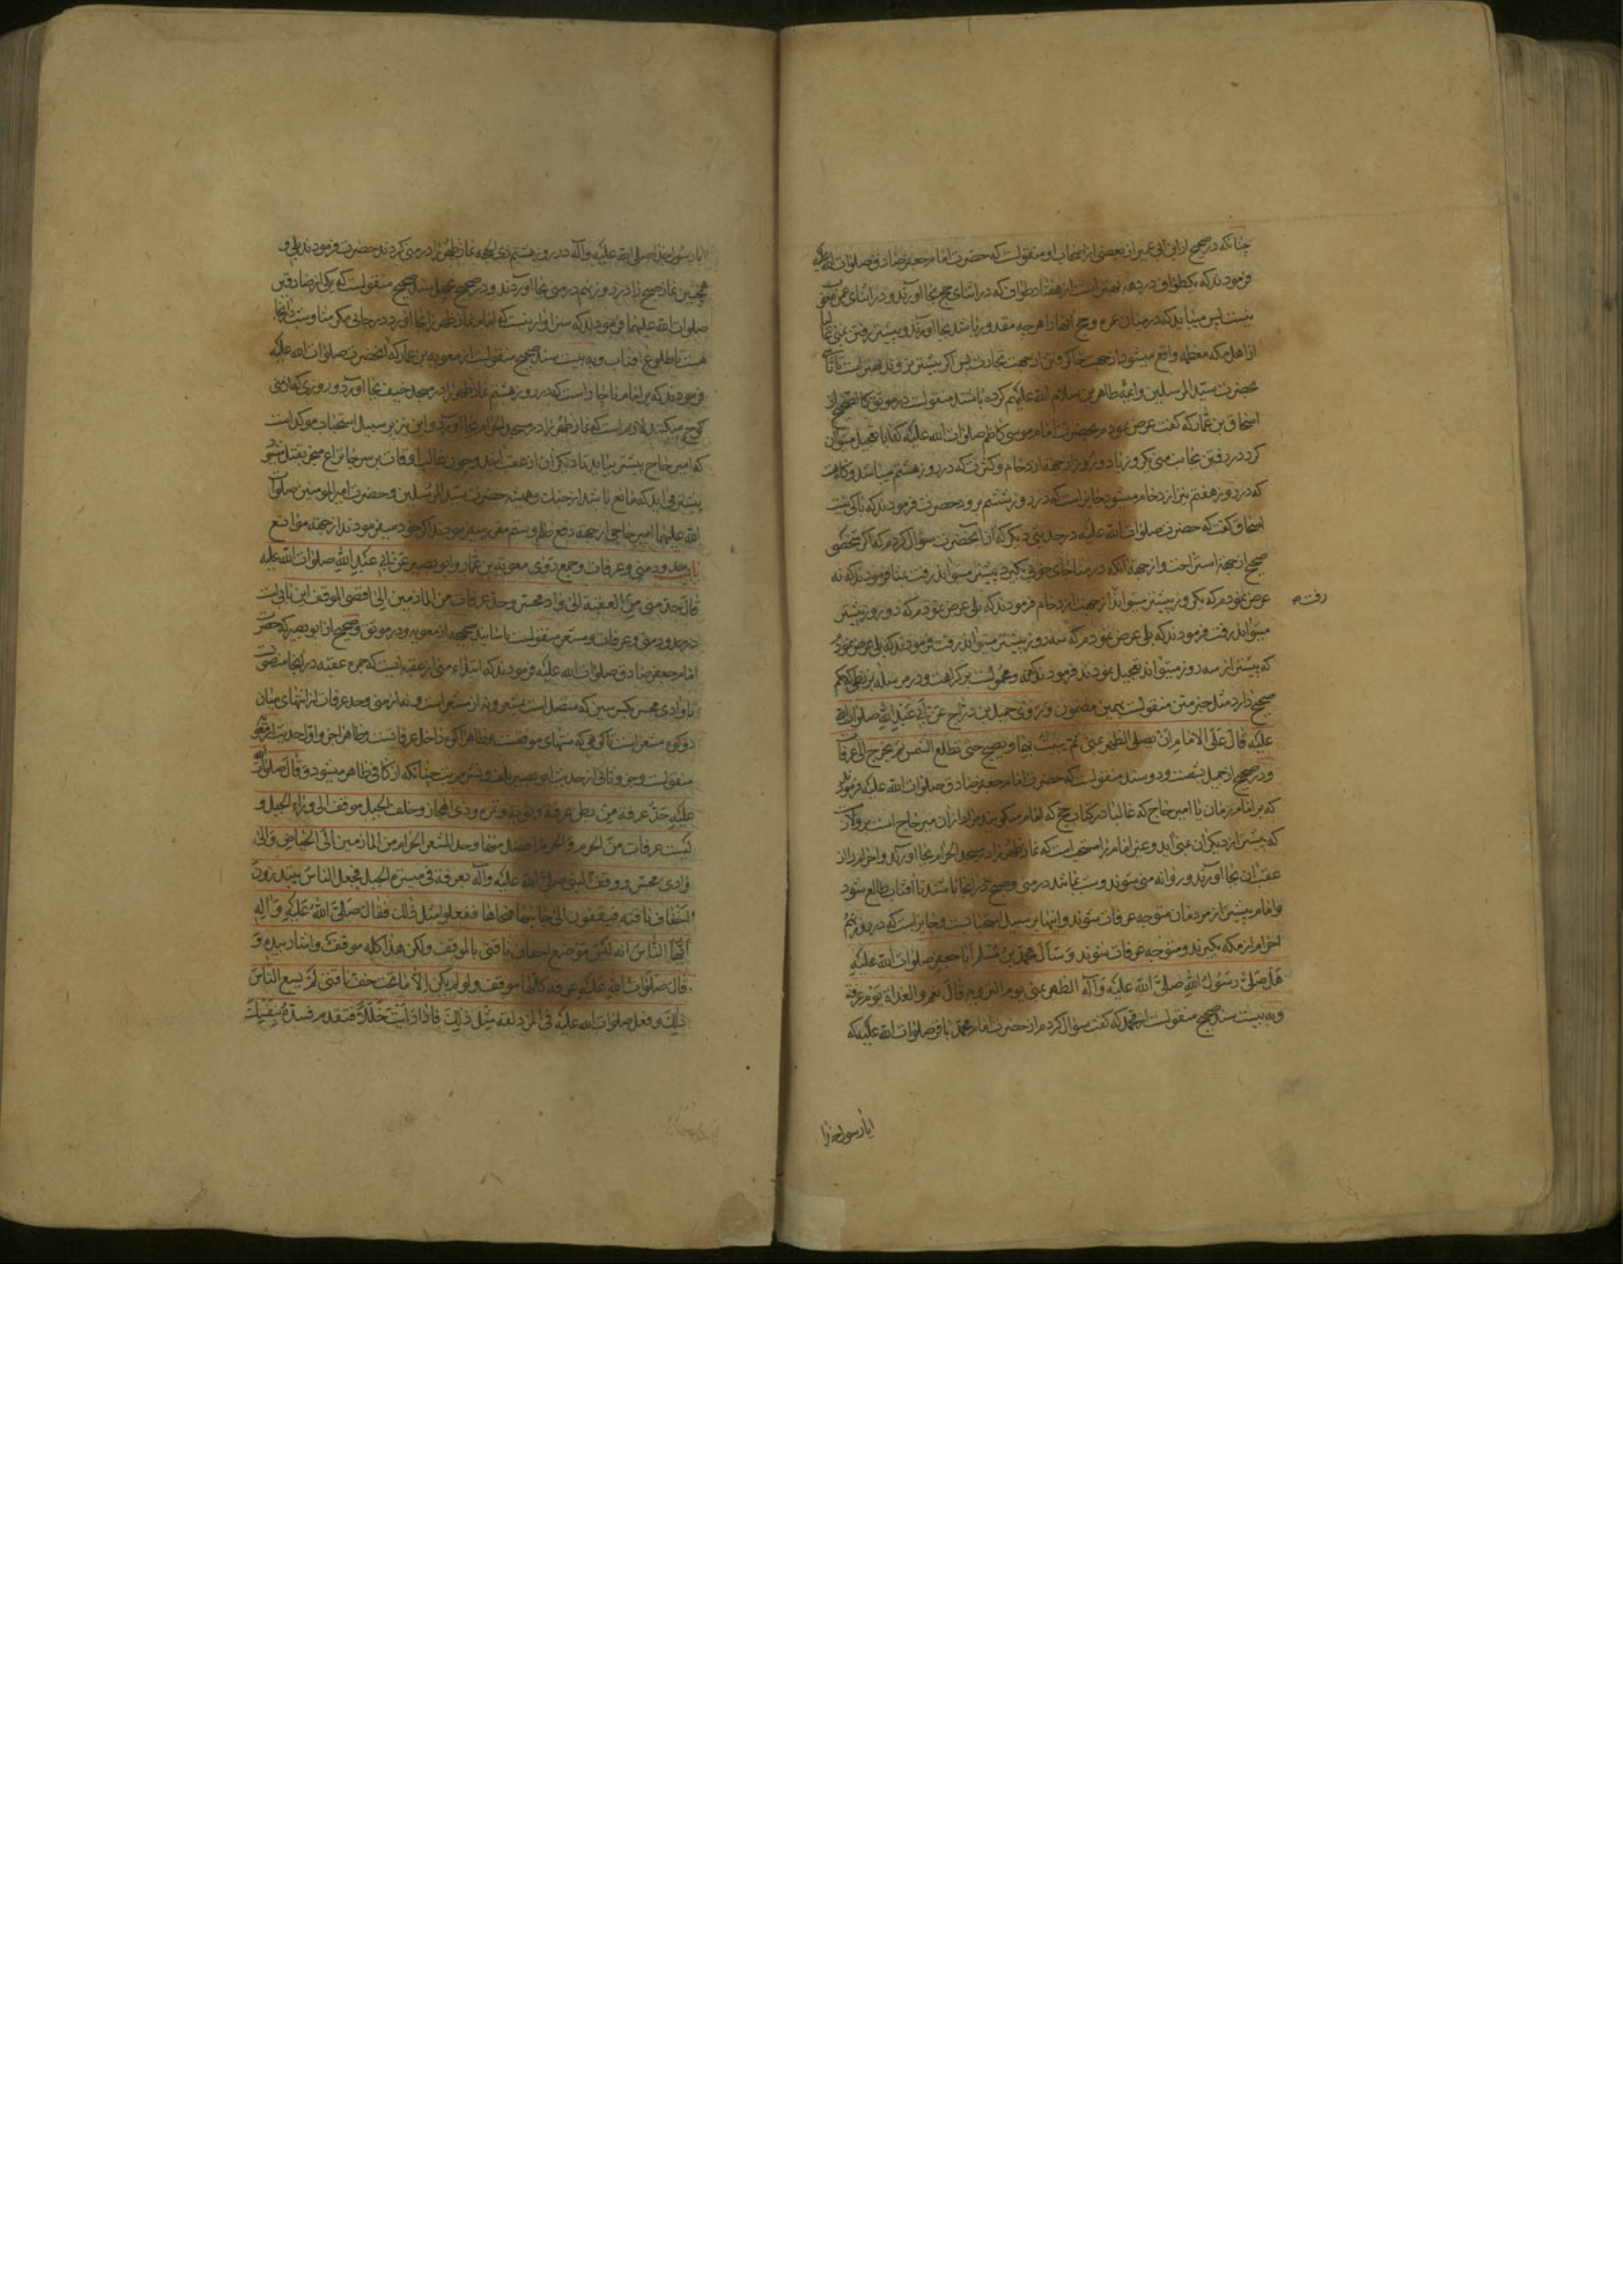 چنانکه در صحیح از ابن ابی عمیر از بعضی از اصحاب او منقولست که حضرت امام جعفر صادق صلوات الله علیه
فرمودند که یک طواف در دهه بهتر است از هفتاد طواف که در اثنای حج بجا آورند و در اثنای عمره منفی
نیست پس میباید که در میان عمره و حج آنها را هرچه مقدور باشد بجا آورند و بیشتر رفتن بمنی غالبا
از اهل مکه معظمه واقع میشود از جهت جا گرفتن از جهت تجارت پس اگر پیشتر نروند بهتر است تا تأسی
بحضرت سید المرسلین و ائمه طاهرین سلام الله علیهم کرده باشند منقولست در موثق کالصحیح از
اسحاق بن عمار که گفت عرض نمودم بحضرت امام موسی کاظم صلوات الله علیه که آیا تعجیل میتوان
کرد در رفتن بجانب منی یکروز یا دو روز از جهة ازدحام و کثرت که در روز هشتم میباشد و گاه هست
که در روز هفتم نیز ازدحام میشود جایز است که در روز ششم برود حضرت فرمودند که باکی نیست
اسحاق گفت که حضرت صلوات الله علیه در حدیثی دیگر که از آنحضرت سؤال کردم که اگر شخصی
صحیح از جهة استراحت و از جهة آنکه در منا جای خوبی بگیرد پیشتر میتواند رفت بمنا فرمودند که نه
عرض نمودم که یکروز پیشتر میتواند از جهت ازدحام فرمودند که بلی عرض نمودم که دو روز پیشتر
رفت صح
میتواند رفت فرمودند که بلی عرض نمودم که سه روز پیشتر میتواند رفت فرمودند که بلی عرض نمود
که پیشتر از سه روز میتواند تعجیل نمودند فرمودند که نه و محمولست بر کراهت و در مرسله بزنطی که حکم
صحیح دارد مثل خبر متن منقولست بهمین مضمون و روی جمیل بن دراج عن ابی عبد الله صلوات الله
علیه قال علی الامام ان یصلی الظهر بمنی ثم یبیت بها و یصبح حتی تطلع الشمس ثم یخرج الی عرفات
و در صحیح از جمیل بشصت و دو سند منقولست که حضرت امام جعفر صادق صلوات الله علیه فرمودند
که بر امام زمان یا امیر حاج که غالبا در کتاب حج که امام میگویند مراد از آن میر حاج است
که پیشتر از دیگران بمنی آید و غیر امام را مستحب است که نماز ظهر را در مسجد الحرام بجا آورند و احرام را از
عقب آن بجا آورند و روانه منی شوند و شب بمانند در منی و صبح در آنجا باشند تا آفتاب طالع شود
و امام پیشتر از مردمان متوجه عرفات شوند و اینها بر سبیل استحبابست و جایز است که در روز نهم
احرام از مکه بگیرند و متوجه عرفات شوند و سأل محمد بن مسلم ابا جعفر صلوات الله علیه
هل صلی رسول الله صلی الله علیه و آله الظهر بمنی یوم الترویه قال نعم و الغداة یوم عرفة
و به بیست سند صحیح منقولست از محمد که گفت سؤال کردم از حضرت امام محمد باقر صلوات الله علیه که
آیا رسول خدا
آیا رسول خدا صلی الله علیه و آله در روز هشتم ذی الحجه نماز ظهر را در منی کردند حضرت فرمودند بلی و
همچنین نماز صبح را در روز نهم در منی بجا آوردند و در صحیح بچهل سند صحیح منقولست که یکی از صادقین
صلوات الله علیهما فرمودند که سزاوار نیست که امام نماز ظهر را بجا آورد در جائی مگر منا و شب در آنجا
هست تا طلوع آفتاب و به بیست سند صحیح منقولست از معویة بن عمار که آنحضرت صلوات الله علیه
فرمودند که بر امام ناچار است که در روز هشتم نماز ظهر را در مسجد خیف بجا آورد و روزی که از منی
کوچ میکند لازم است که نماز ظهر را در مسجد الحرام بجا آورد و این نیز بر سبیل استحباب موکد است
که امیر حاج پیشتر بیاید تا دیگران از عقب آیند و چون غالب اوقات بر سر جا نزاع منجر بقتل میشود
پیشتر می آید که مانع باشد از جنگ و همیشه حضرت سید المرسلین و حضرت امیر المومنین صلوات
الله علیهما امیر حاجی از جهة دفع ظلم و ستم مقرر میفرمودند اگر خود نمیفرمودند از جهة موانع
باب حدود منی و عرفات و جمع روی معویة بن عمار و ابو بصیر عن ابی عبد الله صلوات الله علیه
قال حد منی من العقبة الی وادی محسر و حد عرفات من المازمین الی اقصی الموقف این بابیست
در حدود منی و عرفات و مشعر منقولست باسانید صحیحه از معویه و در موثق و صحیح از ابو بصیر که حضرت
امام جعفر صادق صلوات الله علیه فرمودند که ابتداء منی از عقبه است که جمره عقبه در آنجا منصوبست
تا وادی محسر بکسر سین که متصل است بمشعر و نه از مشعر است و نه از منی و حد عرفات از انتهای میان
دو کوه مشعر است تا کوهی که منتهای موقفست و ظاهرا کوه داخل عرفاتست و ظاهرا جزو اول حدیث از معویه
منقولست و جزو ثانی از حدیث ابو بصیر بلف و نشر مرتب چنانکه از کافی ظاهر میشود و قال صلوات الله
علیه حد عرفة من بطن عرنة و ثویة و نمرة و ذی المجاز و خلف الجبل موقف الی وراء الجبل و
لیست عرفات من الحرم و الحرم افضل منها و حد المشعر الحرام من المازمین الی الحیاض و الی
وادی محسر و وقف النبی صلی الله علیه و آله بعرفة فی میسرة الجبل فجعل الناس یبتدرون
اخفاف ناقته فیقفون الی جانبها فنحاها ففعلوا مثل ذلک فقال صلی الله علیه و اله
ایها الناس انه لیس موضع اخفاف ناقتی بالموقف و لکن هذا کله موقف و اشار بیده و
قال صلوات الله علیه عرفة کلها موقف و لو لم یکن الا ما تحت خف ناقتی لم یسع الناس
ذلک و فعل صلوات الله علیه فی المزدلفة مثل ذلک فاذا رایت خللا فتقدم فسده بنفسک